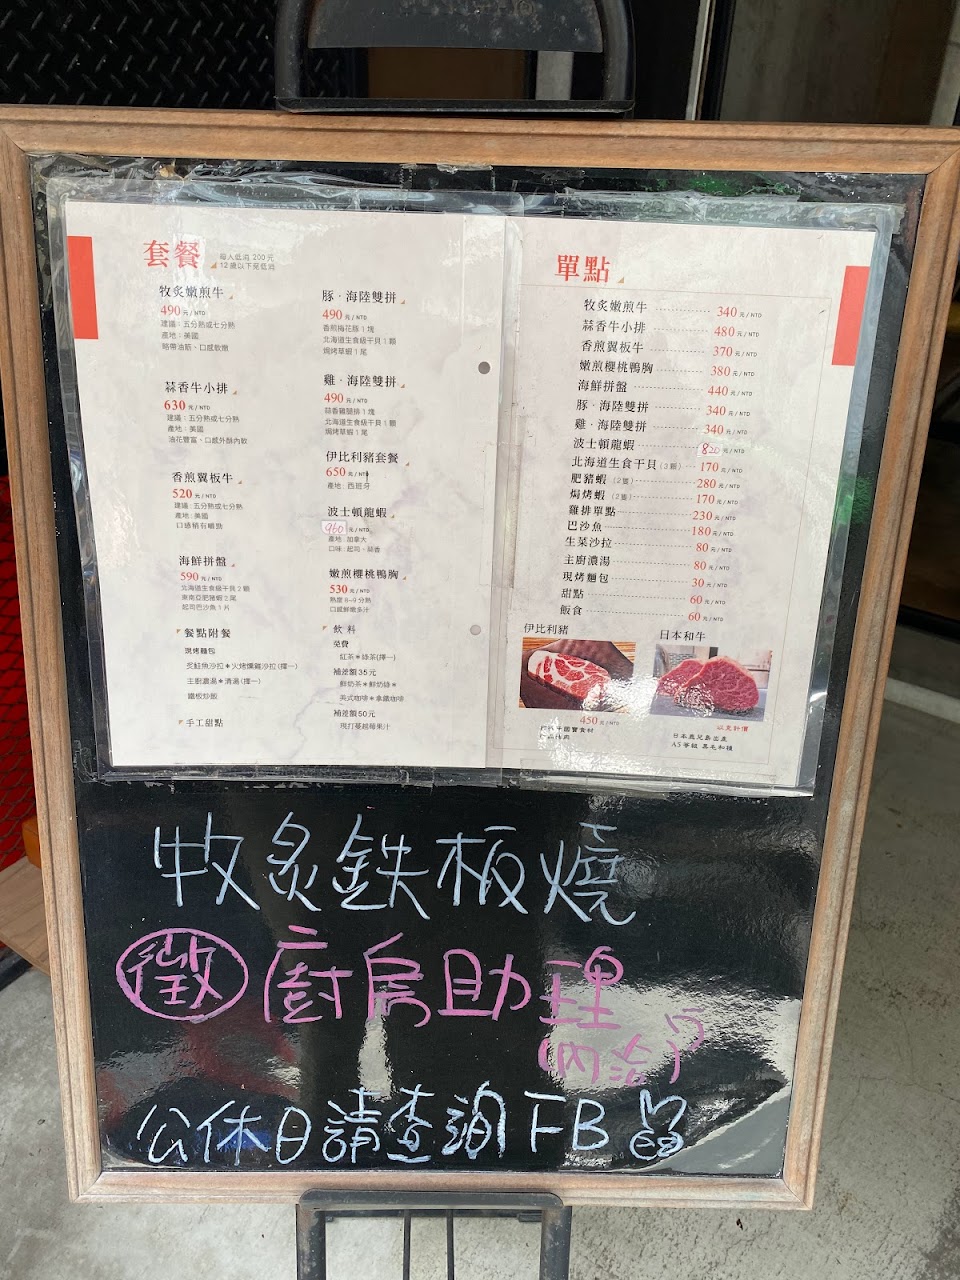 套餐
每人低消 200元
12歲以下免低消
牧炙嫩煎牛
490 元/NTD
建議：五分熟或七分熟
產地：美國
略帶油筋、口感軟嫩
蒜香牛小排
630 元/NTD
建議：五分熟或七分熟
產地：美國
油花豐富、口感外酥內軟
香煎翼板牛
520 元/NTD
建議：五分熟或七分熟
產地：美國
口感稍有嚼勁
海鮮拼盤
590 元/NTD
北海道生食級干貝2顆
東南亞肥豬蝦2尾
起司巴沙魚1片
餐點附餐
現烤麵包
炙鮭魚沙拉＊火烤燻雞沙拉(擇一)
主廚濃湯＊清湯(擇一)
鐵板炒飯
手工甜點
豚．海陸雙拼
490 元/NTD
香煎梅花豚1塊
北海道生食級干貝1顆
焗烤草蝦1尾
雞．海陸雙拼
490 元/NTD
蒜香雞腿排1塊
北海道生食級干貝1顆
焗烤草蝦1尾
伊比利豬套餐
650 元/NTD
產地：西班牙
波士頓龍蝦
960 元/NTD
產地：加拿大
口味：起司、蒜香
嫩煎櫻桃鴨胸
530 元/NTD
熟度 8~9分熟
口感鮮嫩多汁
飲料
免費
紅茶＊綠茶(擇一)
補差額35元
鮮奶茶＊鮮奶綠＊
美式咖啡＊拿鐵咖啡
補差額50元
現打蔓越莓果汁
單點
牧炙嫩煎牛 340 元/NTD
蒜香牛小排 480 元/NTD
香煎翼板牛 370 元/NTD
嫩煎櫻桃鴨胸 380 元/NTD
海鮮拼盤 440 元/NTD
豚．海陸雙拼 340 元/NTD
雞．海陸雙拼 340 元/NTD
波士頓龍蝦 820 元/NTD
北海道生食干貝(3顆) 170 元/NTD
肥豬蝦(2隻) 280 元/NTD
焗烤蝦(2隻) 170 元/NTD
雞排單點 230 元/NTD
巴沙魚 180 元/NTD
生菜沙拉 80 元/NTD
主廚濃湯 80 元/NTD
現烤麵包 30 元/NTD
甜點 60 元/NTD
飯食 60 元/NTD
伊比利豬
450 元/NTD
日本和牛
以克計價
日本鹿兒島出產
A5等級 黑毛和種
牧炙鉄板燒
徵 廚房助理
(內洽)
公休日請查詢FB